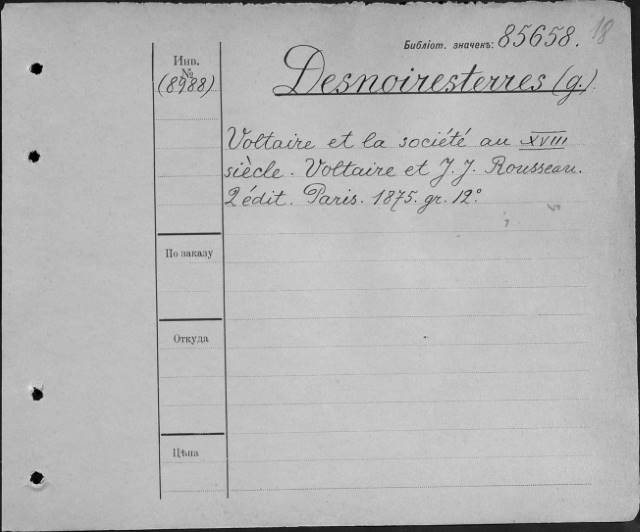 18
Библіот. значекъ: 85658.
Инв.
№
(8988)
Desnoiresterres (g.)
Voltaire et la société au XVIII
siècle. Voltaire et J. J. Rousseau.
2 édit. Paris. 1875. gr. 12º
По заказу
Откуда
Цѣна